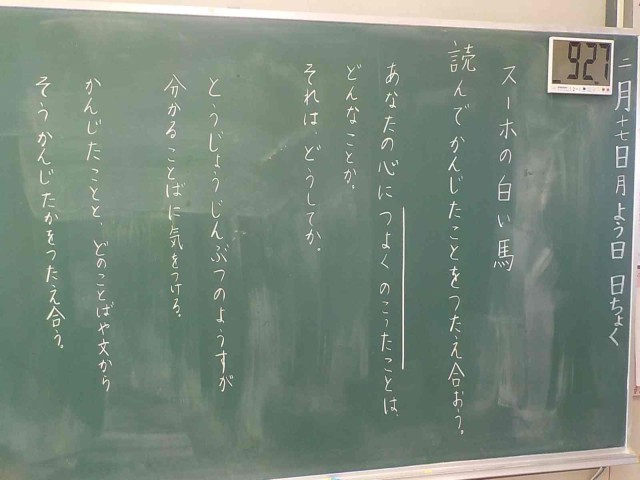 二月十七日月よう日 日ちょく
9:27
スーホの白い馬
読んでかんじたことをつたえ合おう。
あなたの心につよくのこったことは、
どんなことか。
それは、どうしてか。
とうじょうじんぶつのようすが
分かることばに気をつける。
かんじたことと、どのことばや文から
そうかんじたかをつたえ合う。